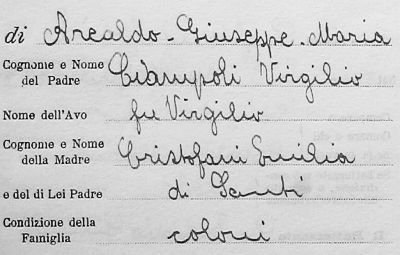 di Arealdo - Giuseppe - Maria
Cognome e Nome
del Padre Ciampoli Virgilio
Nome dell'Avo fu Virgilio
Cognome e Nome
della Madre Cristofani Emilia
e del di Lei Padre di Santi
Condizione della
Famiglia coloni